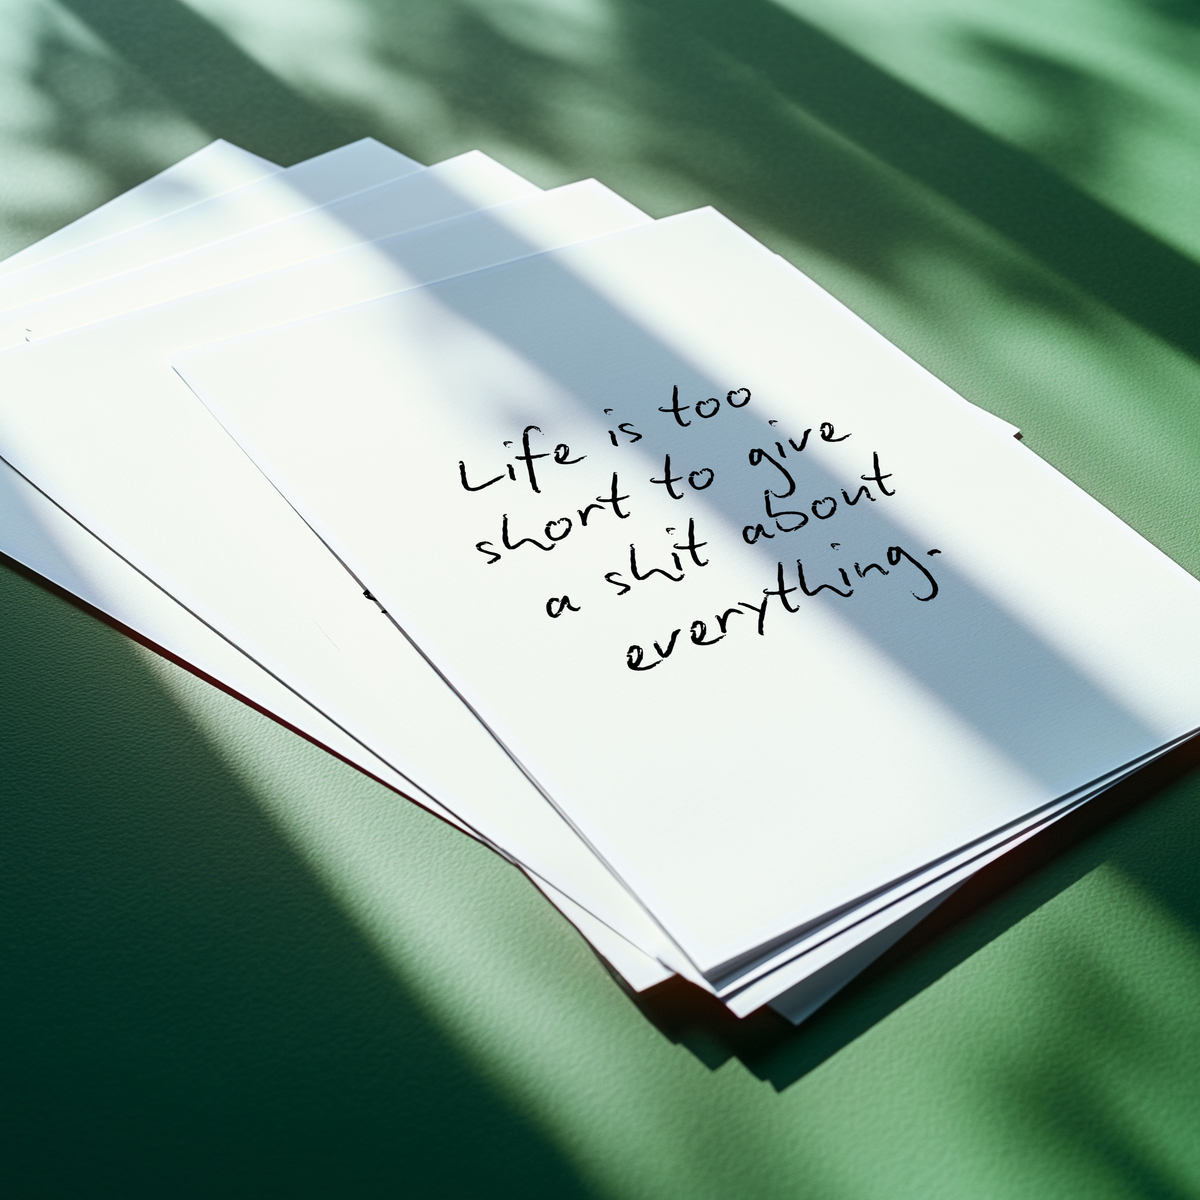 Life is too
short to give
a shit about
everything.